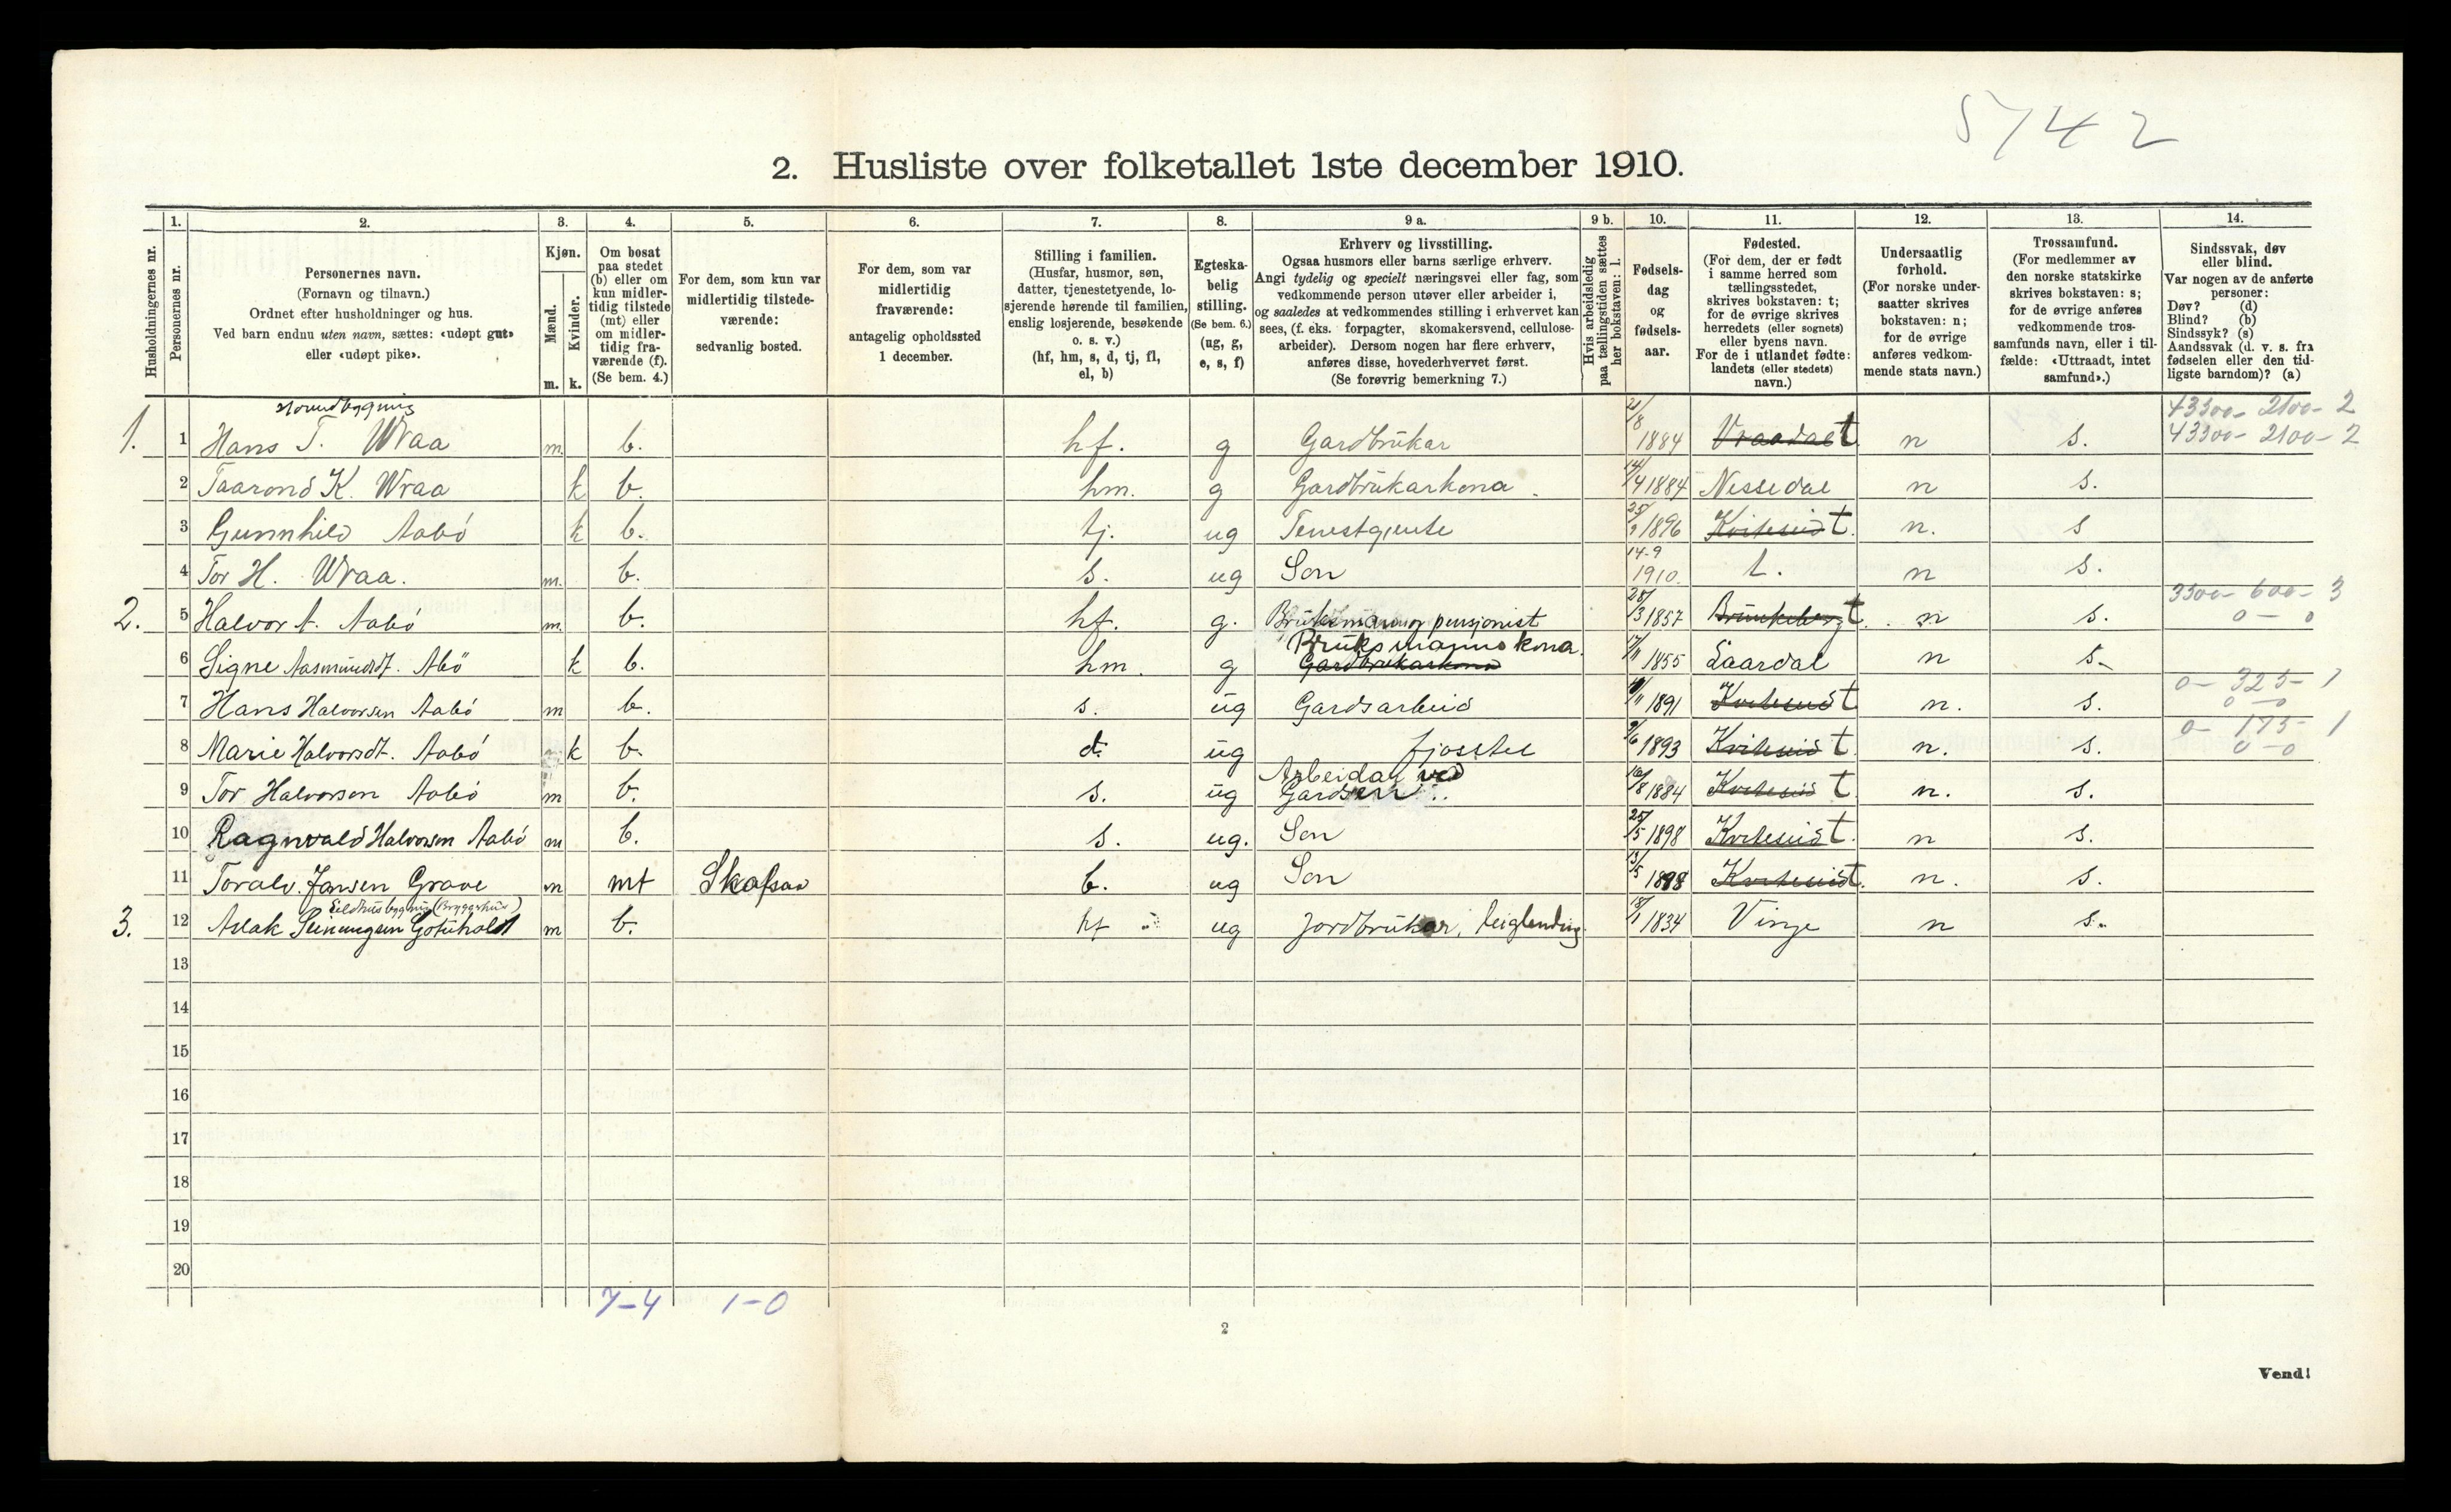 5742
2. Husliste over folketallet 1ste december 1910.
Husholdningernes nr.
1.
Personernes nr.
2.
Personernes navn.
(Fornavn og tilnavn.)
Ordnet efter husholdninger og hus.
Ved barn endnu uten navn, sættes: «udøpt gut»
eller «udøpt pike».
3.
Kjøn.
Mænd.
Kvinder.
m. k.
4.
Om bosat
paa stedet
(b) eller om
kun midler-
tidig tilstede
(mt) eller
om midler-
tidig fra-
værende (f).
(Se bem. 4.)
5.
For dem, som kun var
midlertidig tilstede-
værende:
sedvanlig bosted.
6.
For dem, som var
midlertidig
fraværende:
antagelig opholdssted
1 december.
7.
Stilling i familien.
(Husfar, husmor, søn,
datter, tjenestetyende, lo-
sjerende hørende til familien,
enslig losjerende, besøkende
o. s. v.)
(hf, hm, s, d, tj, fl,
el, b)
8.
Egteska-
belig
stilling.
(Se bem. 6.)
(ug, g,
e, s, f)
9 a.
Erhverv og livsstilling.
Ogsaa husmors eller barns særlige erhverv.
Angi tydelig og specielt næringsvei eller fag, som
vedkommende person utøver eller arbeider i,
og saaledes at vedkommendes stilling i erhvervet kan
sees, (f. eks. forpagter, skomakersvend, cellulose-
arbeider). Dersom nogen har flere erhverv,
anføres disse, hovederhvervet først.
(Se forøvrig bemerkning 7.)
9 b.
Hvis arbeidsledig
paa tællingstiden sættes
her bokstaven: l.
10.
Fødsels-
dag
og
fødsels-
aar.
11.
Fødested.
(For dem, der er født
i samme herred som
tællingsstedet,
skrives bokstaven: t;
for de øvrige skrives
herredets (eller sognets)
eller byens navn.
For de i utlandet fødte:
landets (eller stedets)
navn.)
12.
Undersaatlig
forhold.
(For norske under-
saatter skrives
bokstaven: n;
for de øvrige
anføres vedkom-
mende stats navn.)
13.
Trossamfund.
(For medlemmer av
den norske statskirke
skrives bokstaven: s;
for de øvrige anføres
vedkommende tros-
samfunds navn, eller i til-
fælde: «Uttraadt, intet
samfund».)
14.
Sindssvak, døv
eller blind.
Var nogen av de anførte
personer:
Døv? (d)
Blind? (b)
Sindssyk? (s)
Aandssvak (d. v. s. fra
fødselen eller den tid-
ligste barndom)? (a)
43300- 2100- 2
1. 1 Hans T. Wraa m. b. hf. g Gardbrukar 21/8 1884 Vraadal t n s. 43300- 2100- 2
2 Taarond K. Wraa k b. hm. g Gardbrukarkona. 14/4 1884 Nissedal n s.
3 Gunnhild Aabö k b. tj. ug Tenestgjente 1896 Kviteseid t. n. s
4 Tor H. Wraa. m. b. s. ug Son 14-9 1910. t. n s.
3300- 600- 3
2. 5 Halvor A. Aabö m. b. hf. g. Bruksmann og pensjonist 1857 Brunkeberg t. n s. 0 — 0
Bruksmannskona.
6 Signe Aasmundsdt. Abö k b. hm. g Gardbrukarkona 17/11 1855 Laardal n s.
0- 325- 1
7 Hans Halvorsen Aabö m b. s. ug Gardsarbeid 1891 Kviteseid t n. s. 0 - 0
0- 175- 1
8 Marie Halvorsdt. Aabö k b. d. ug fjosstel 9/6 1893 Kviteseid t. n. s. 0 - 0
Arbeidar ved
9 Tor Halvorsen Aabö m b. s. ug Garden 16/8 1884 Kviteseid t n. s.
10 Ragnvald Halvorsen Aabö m b. s. ug. Son 25/5 1898 Kviteseid t. n s.
11 Toralv. Jansen Grave m mt Skafsaa b. ug Son 13/5 1898 Kviteseid t. n. s.
Eeldhusbygning (Bryggehus)
3. 12 Aslak m b. hf ug Jordbrukar, leiglending 18/1 1834 Vinje n s.
13
14
15
16
17
18
19
20
7-4 1-0
2
Vend!